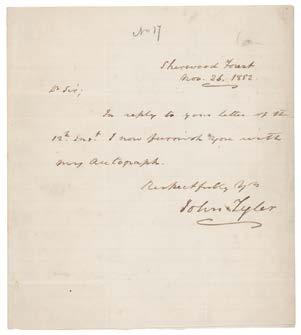 No 17
Sherwood Forest
Nov. 26. 1852
Dr Sir;
In reply to your letter of the
12th Inst. I now furnish you with
my Autograph.
Respectfully Yrs
John Tyler